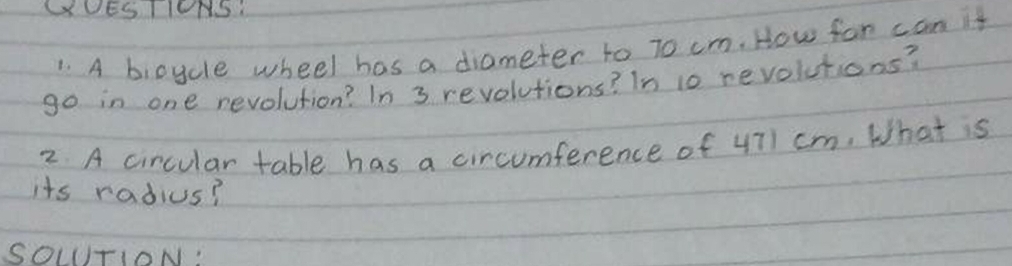 QUESTIONS:
1. A bicycle wheel has a diameter to 70 cm. How far can it
go in one revolution? In 3 revolutions? In 10 revolutions?
2. A circular table has a circumference of 471 cm. What is
its radius?
SOLUTION: